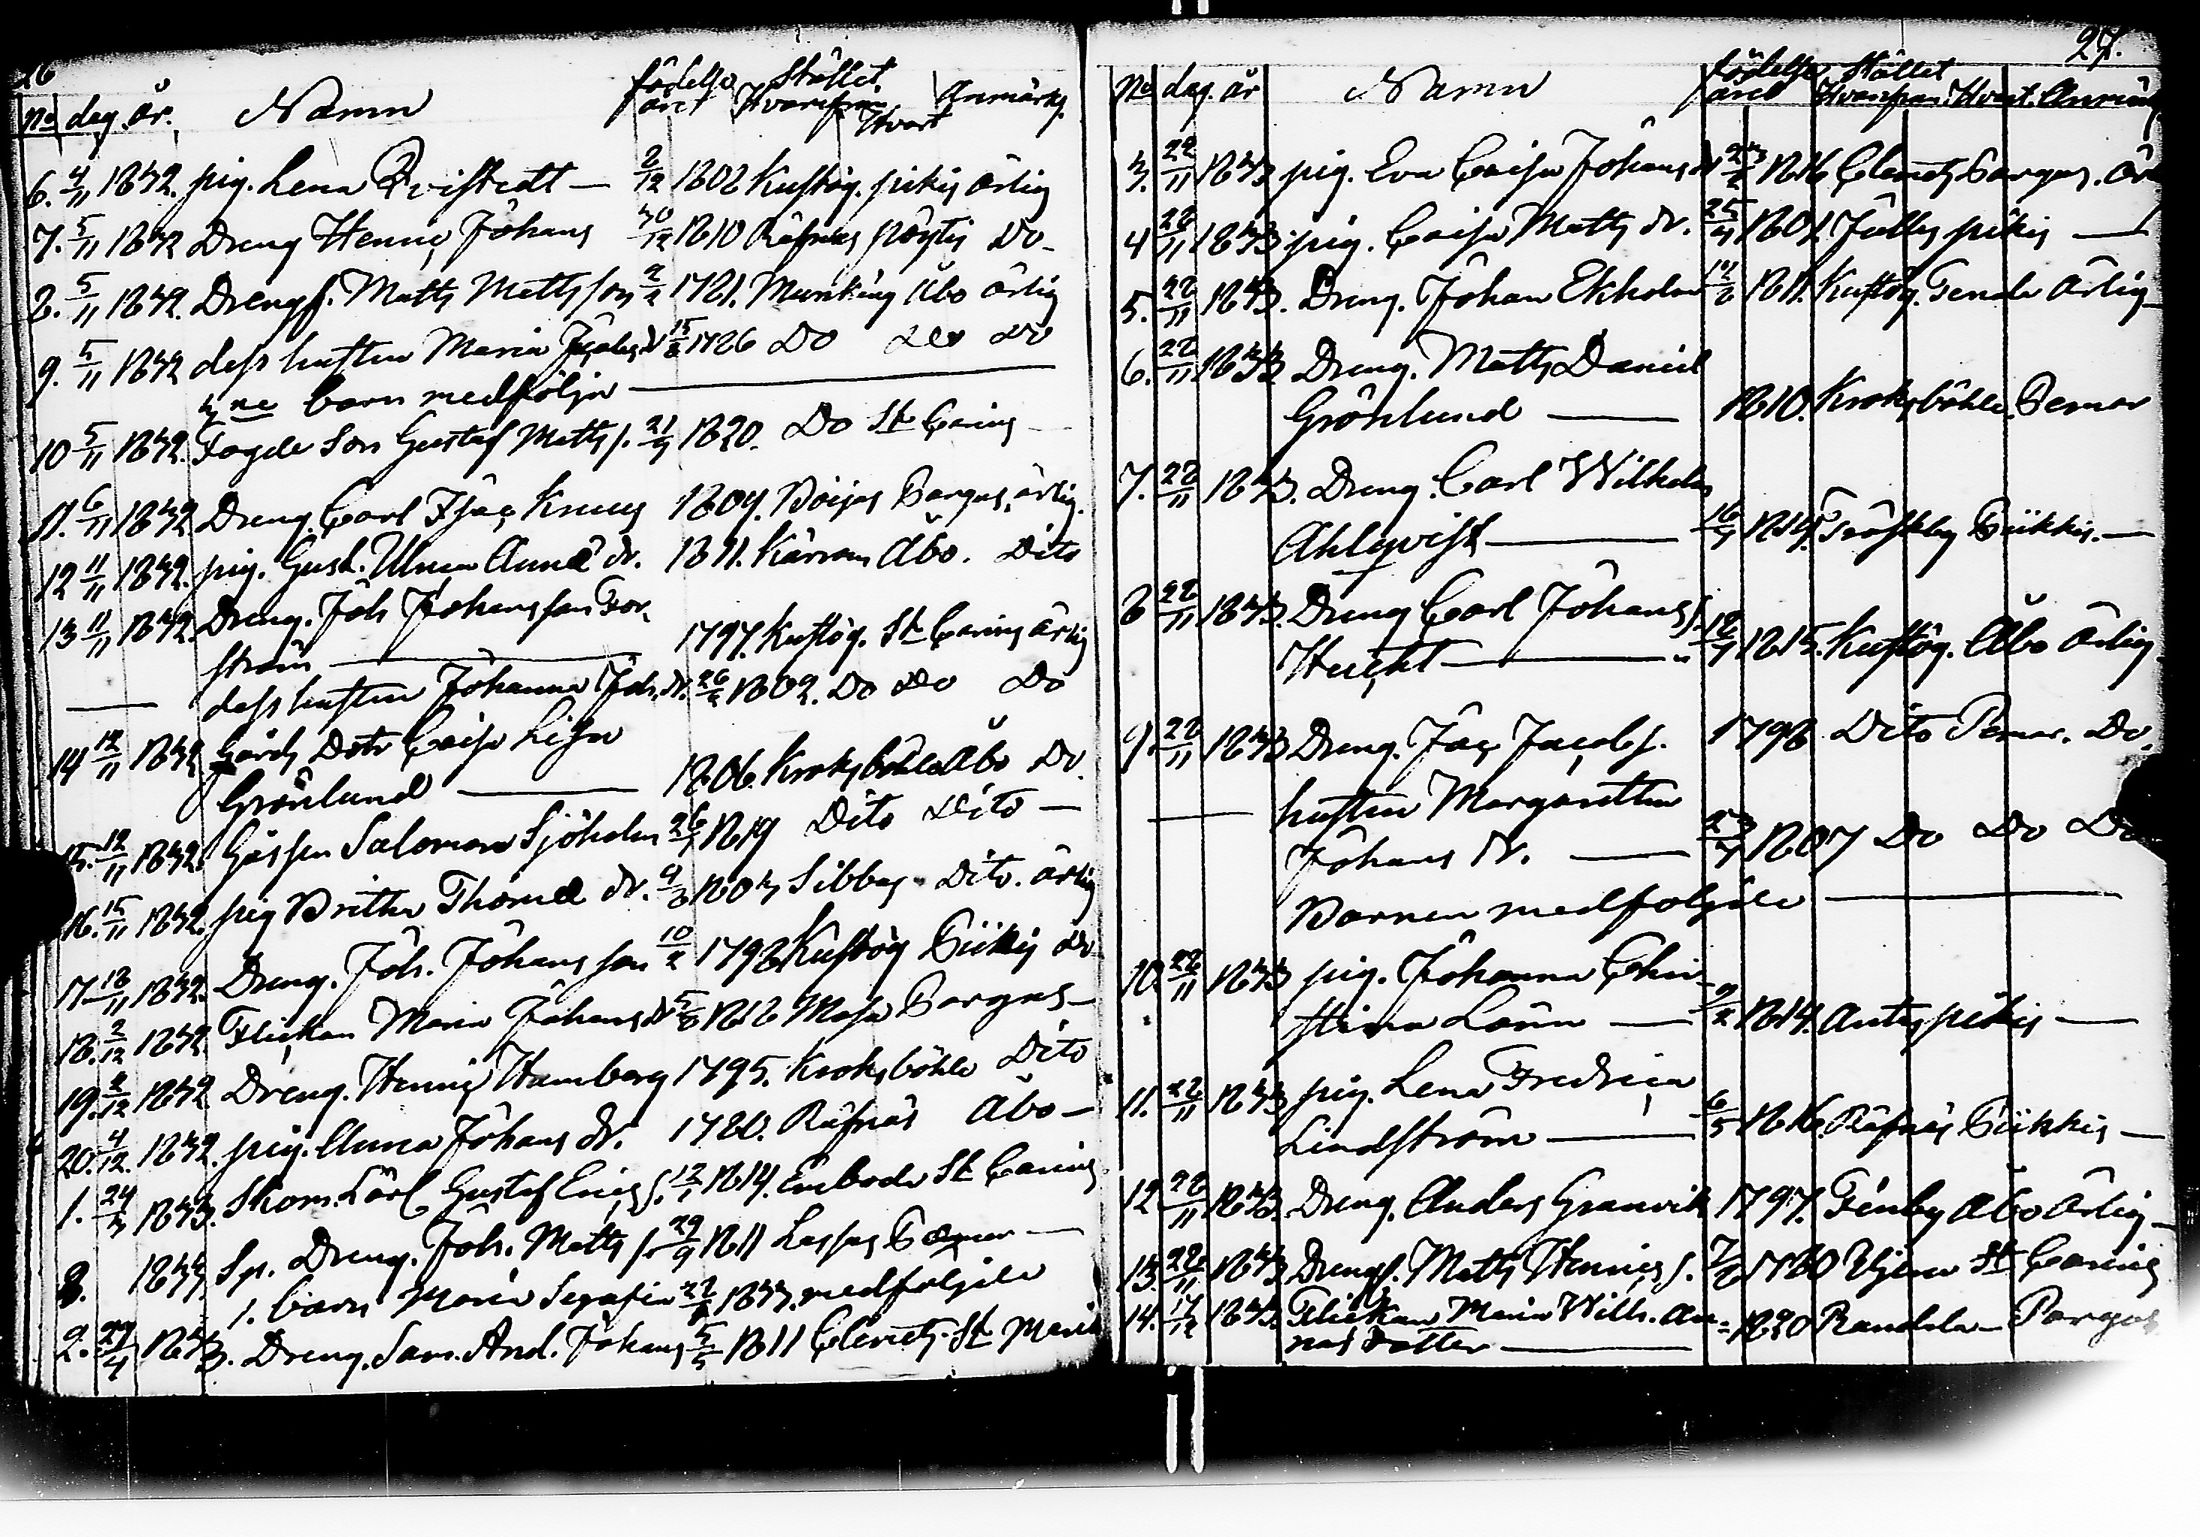 26
No dag. år. Namn födelse året Stället Hvarifrån Hvart Anmärkg.
6. 4/11 1832. pig. Lena Qvistedt — 2/12 1808 Kustög. pikis ärlig
7. 5/11 1832 Dreng Henric Johans 30/12 1810 Räfnäs pöytis Do
8. 5/11 1832. Drengs. Matts Mattsson 2/2 1781. Munkäng Åbo ärlig
9. 5/11 1832 dess hustru Maria Jacobs dr 15/8 1786 Do Do Do
3ne barn medfölja —
10 5/11 1832. Fogde Son Gustaf Matts s. 21/9 1820. Do St Carins
11. 6/11 1832 Dreng. Carl Isac Kruus 1809. Böijas Pargas, ärlig.
12 11/11 1832. pig. Gust. Ulrica Anns dr. 1811. Kärran Åbo. Dito
13 11/11 1832. Dreng. Joh Johansson For-
ström — 1797. Kustög. St Carins ärlig
— dess hustru Johanna Joh. dr. 26/2 1802. Do Do Do
14 12/11 1832 Gårds Dotr Caisa Lisa
Grönlund — 1806. Kroksböhle Åbo Do.
15. 12/11 1832. Gossen Salomon Sjöholm 26/7 1819 Dito Dito —
16. 15/11 1832. pig Britha Thome dr. 9/8 1803 Sibbas Dito. ärlig
17. 18/11 1832. Dreng. Joh. Johansson 10/2 1798 Kustög Piikis Do
18. 2/12 1832 Flickan Maria Johans dr 5/8 1818 Masa Pargas —
19. 2/12 1832 Dreng. Henric Hamberg 1795. Kroksböhle Dito
20. 4/12. 1832. pig. Anna Johans dr. 1780. Räfnäs Åbo —
1. 24/3 1833. Skom. Lärl Gustaf Erics s. 12/1 1814. Embode St Carins
2. 1833 Sp. Dreng. Joh. Matts s. 29/9 1811 Lassas Pemar —
1. barn Maria Serafia 22/1 1833. medföljde
2. 27/4 1833. Dreng. Sam. And. Johans 5/5 1811 Clemets St Marie
27.
No dag. år Namn födelse året Stället Hvarifrån Hvart. Anmärk
3. 22/11 1833 pig. Eva Caisa Johans dr 23/2 1816 Clemets Pargas. Är
4 22/11 1833. pig. Caisa Matts dr. 25/4 1801. Jullas pikis —
5. 22/11 1833. Dreng. Johan Ekholm 14/2 1811. Kustög. Tenala Ärlig
6. 22/11 1833 Dreng. Matts Daniel
Grönlund — 1810. Kroksböhle. Pemar
7. 22/11 1833. Dreng. Carl Wilhelm
Ahlqvist — 16/7 1814. Tråskby Piikkis. —
8 22/11 1833. Dreng Carl Johans s.
Heicht — 18/7 1815. Kustög. Åbo Ärlig
9. 22/11 1833 Dreng. Isac Jacobs s. 1798 Dito Pemar. Do.
— hustru Margaretha
Johans dr. — 23/7 1807 Do Do Do
Barnen medföljde —
10. 22/11 1833 pig. Johanna Chri-
stina Lönn — 2/2 1814. Antas pikis —
11. 22/11 1833 pig. Lena Fredrica
Lindström — 6/5 1816. Räfnäs Piikkis —
12. 22/11 1833. Dreng. Anders Granvik 1797. Finby Åbo Ärlig
13. 22/11 1833 Drengs. Matts Henrics s. 7/8 1780 St Carins
14. 17/12 1833. Flickan Maria Wilh. An-
nas Dotter — 1820 Randala — Pargas